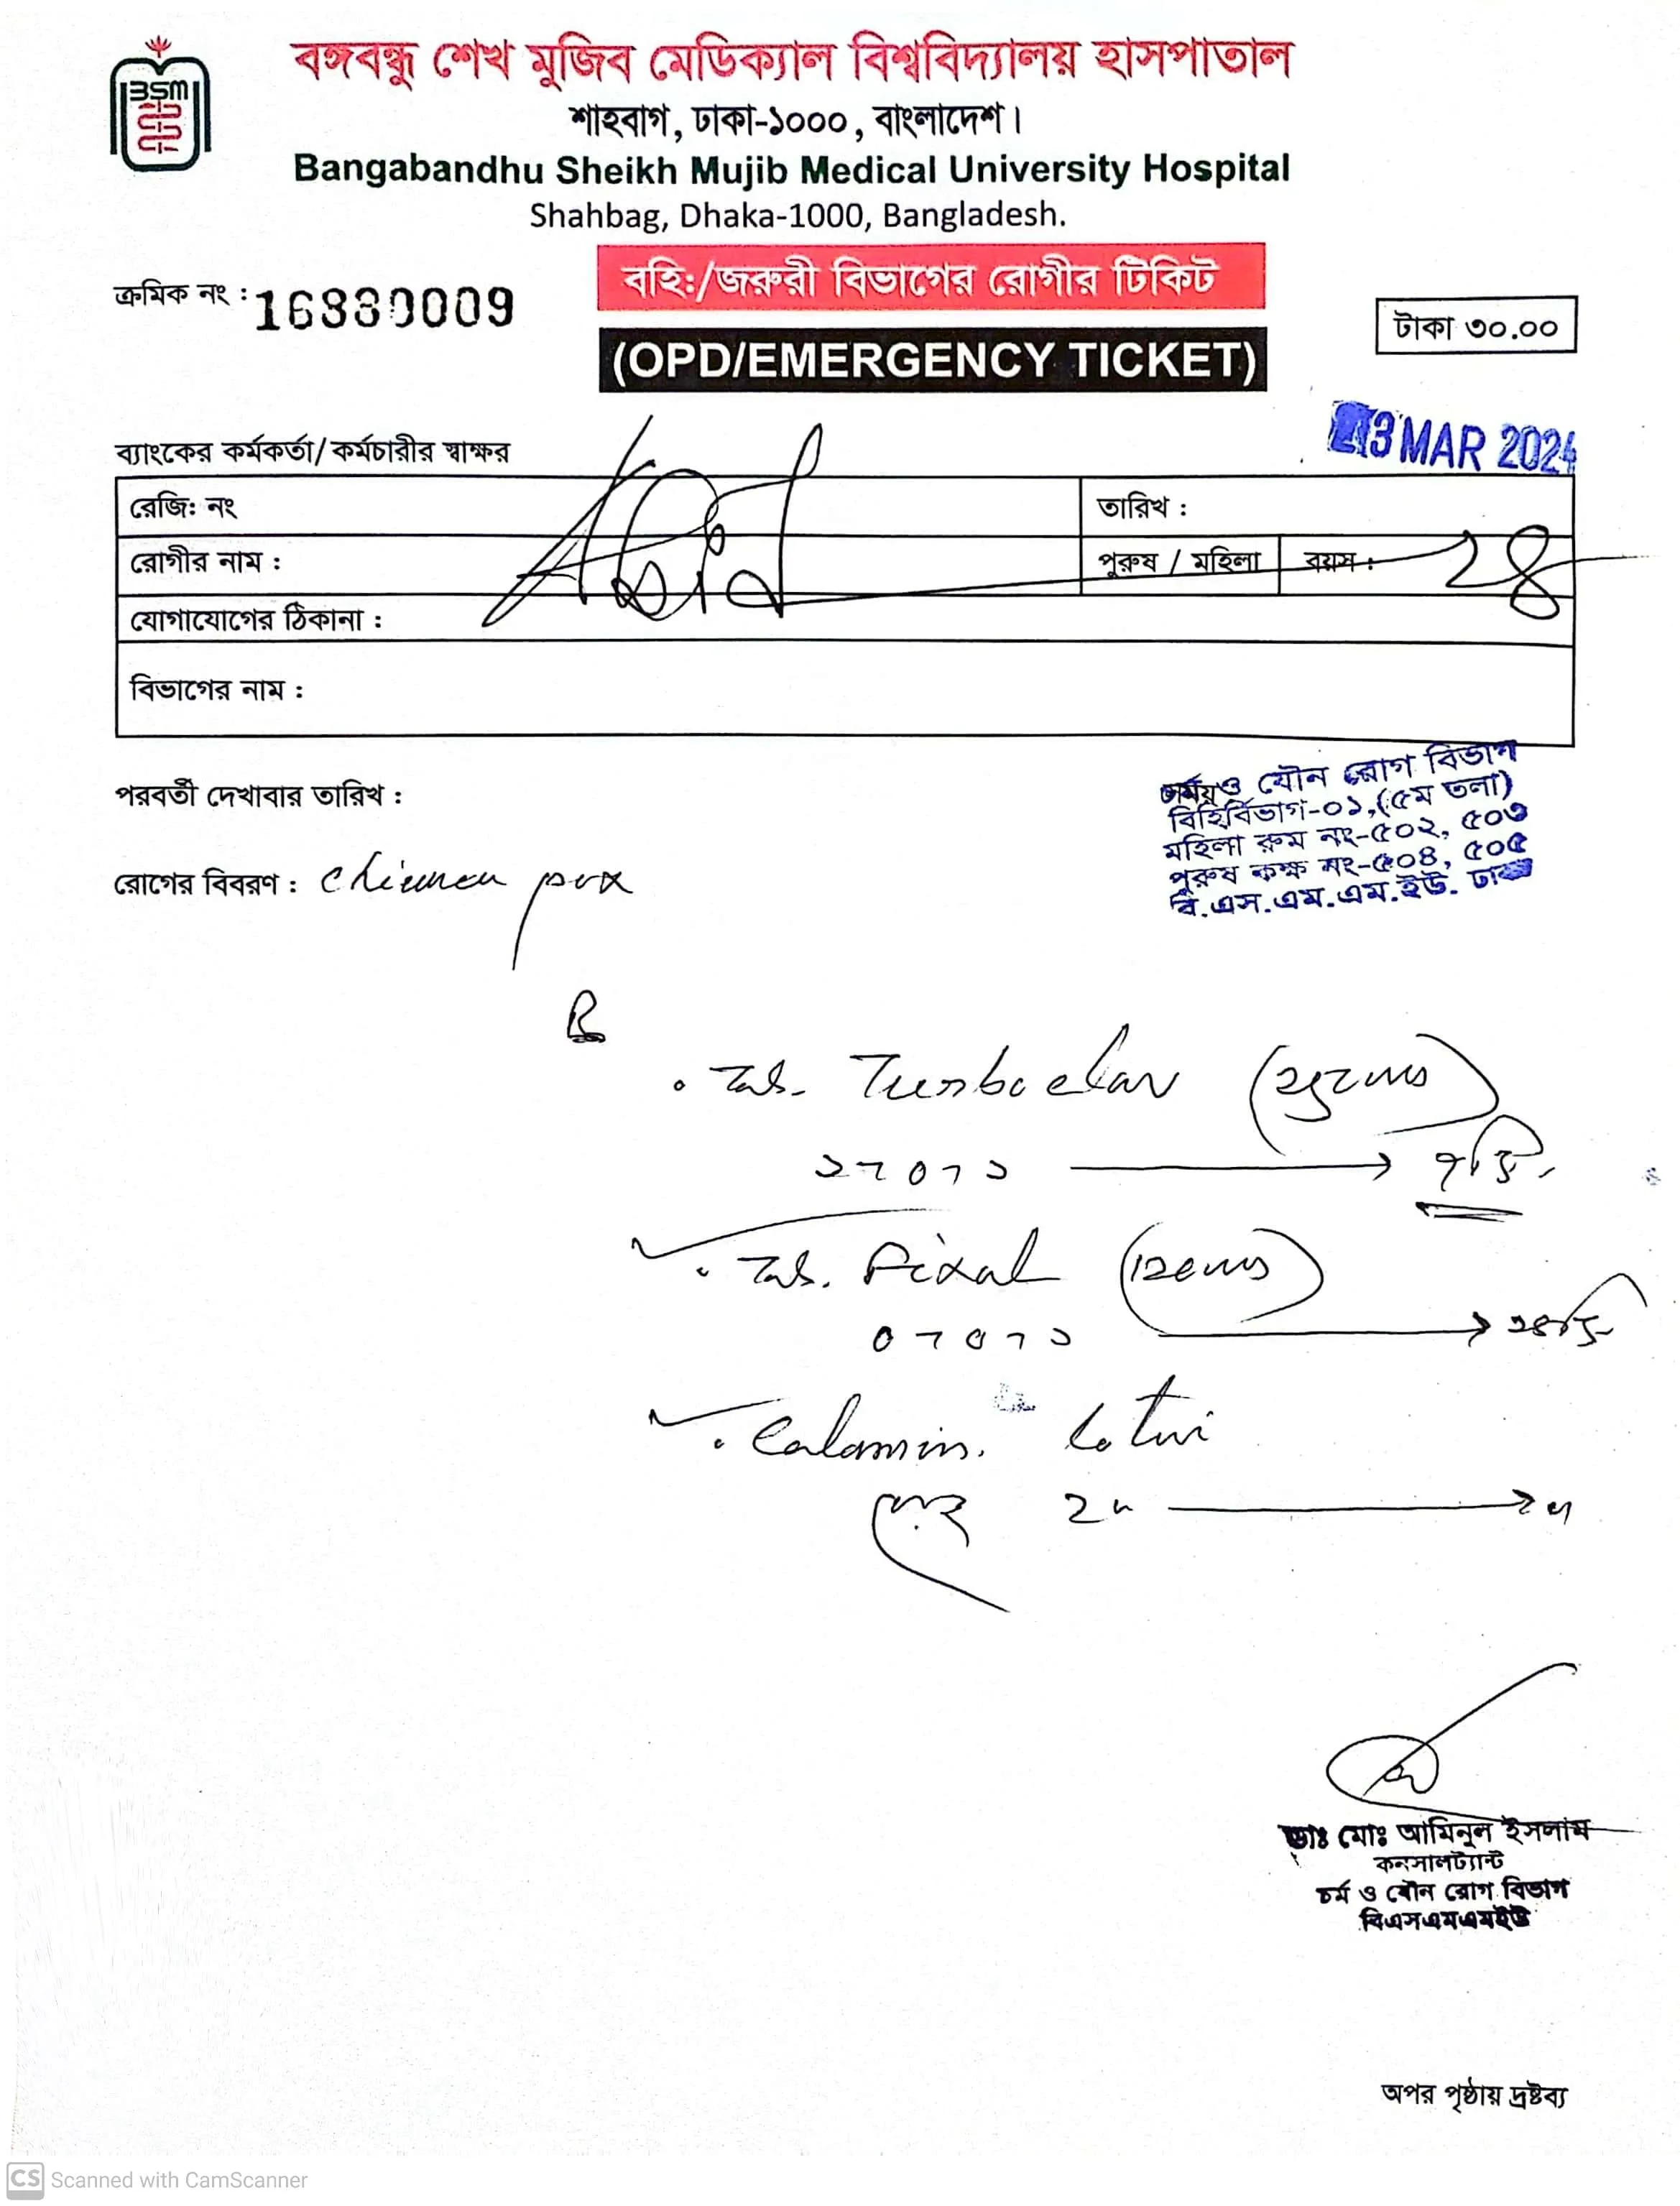 BSM
বঙ্গবন্ধু শেখ মুজিব মেডিক্যাল বিশ্ববিদ্যালয় হাসপাতাল
শাহবাগ, ঢাকা-১০০০, বাংলাদেশ।
Bangabandhu Sheikh Mujib Medical University Hospital
Shahbag, Dhaka-1000, Bangladesh.
ক্রমিক নং :
বহিঃ/জরুরী বিভাগের রোগীর টিকিট
(OPD/EMERGENCY TICKET)
টাকা ৩০.০০
MAR 2024
ব্যাংকের কর্মকর্তা/ কর্মচারীর স্বাক্ষর
রেজি: নং তারিখ :
রোগীর নাম : পুরুষ / মহিলা বয়স : ২৪
যোগাযোগের ঠিকানা :
বিভাগের নাম :
পরবর্তী দেখাবার তারিখ :
চর্ম ও যৌন রোগ বিভাগ
বহির্বিভাগ-০১,(৫ম তলা)
মহিলা রুম নং-৫০২, ৫০৩
পুরুষ কক্ষ নং-৫০৪, ৫০৫
বি.এস.এম.এম.ইউ. ঢাকা
রোগের বিবরণ : Chicken pox
Tab. Turboclav
১ + ০ + ১
Tab. (120mg)
০ + ০ + ১
Calamin. Lotion
ডাঃ মোঃ আমিনুল ইসলাম
কনসালট্যান্ট
চর্ম ও যৌন রোগ বিভাগ
বিএসএমএমইউ
অপর পৃষ্ঠায় দ্রষ্টব্য
CS Scanned with CamScanner